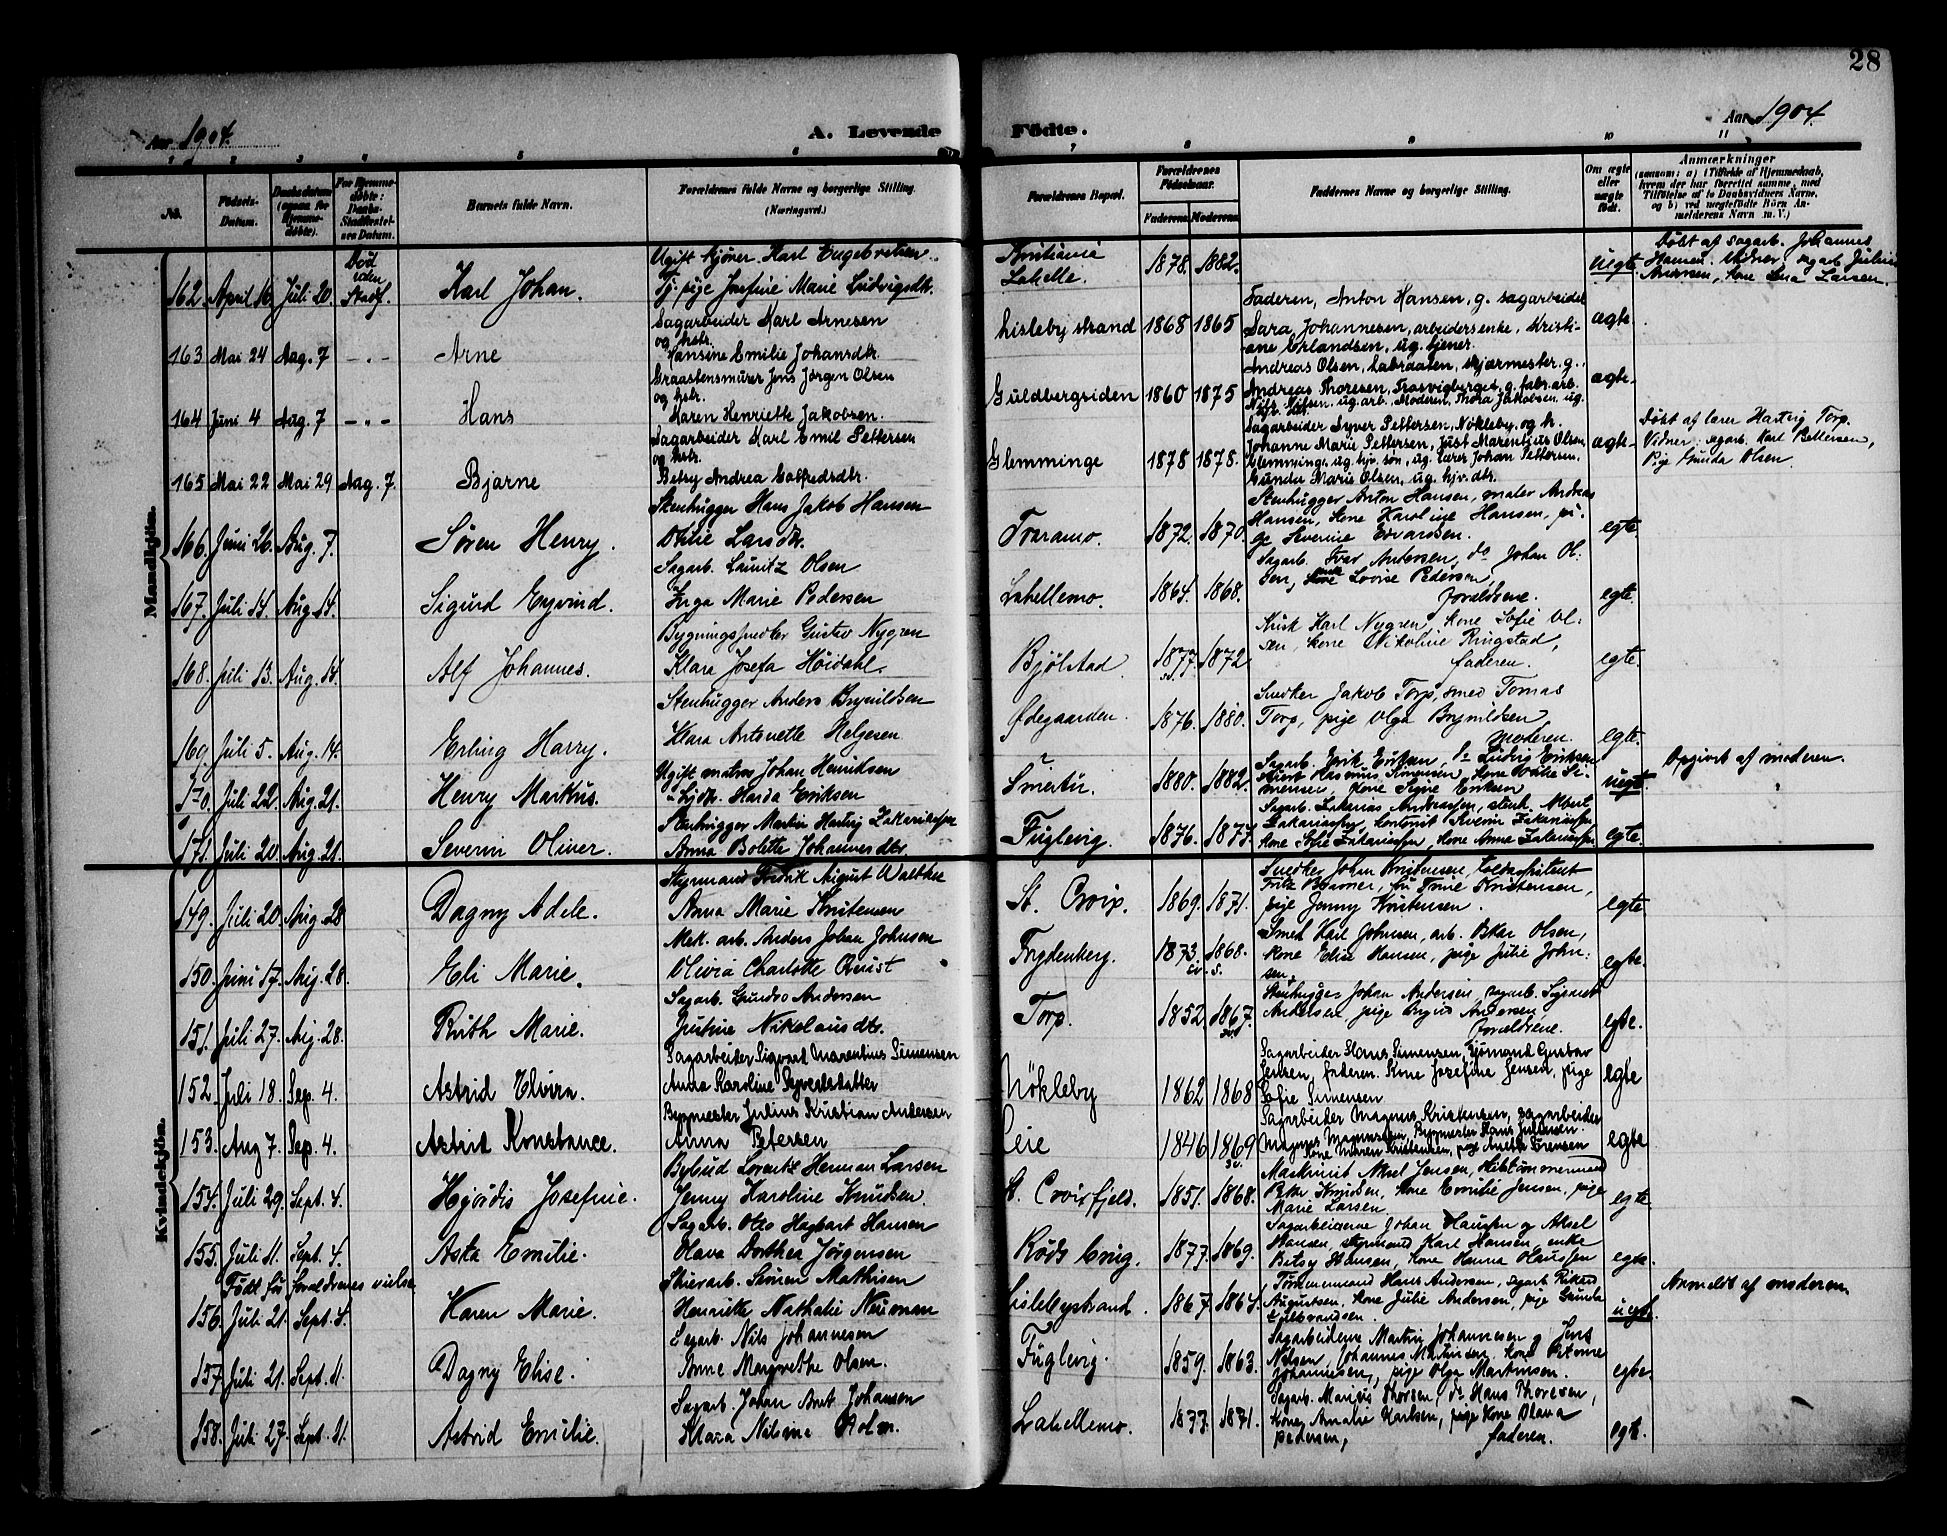 28
Aar 1904.
A. Levende
Födte.
Aar 1904
1 2 3 4 5 6 7 8 9 10 11
No.
Födsels-Datum.
Daabsdatum (ogsaa for Hjemmedöbte).
For Hjemmedöbte: Daabs-Stadfestelsens Datum.
Barnets fulde Navn.
Forældrenes fulde Navne og borgerlige Stilling. (Næringsvei.)
Forældrenes Bopæl.
Forældrenes Födselsaar.
Faderens
Moderens
Faddernes Navne og borgerlige Stilling.
Om ægte eller uægte födt.
Anmærkninger
(saasom: a) i Tilfælde af Hjemmedaab, hvem der har forrettet samme, med Tilföielse af to Daabsvidners Navne, og b) ved uægtefödte Börn Anmelderens Navn m. V.)
Mandkjön.
162. April 16 Juli 20. Död uden Stadf. Karl Johan. Ugift kjörer Karl Engebretsen Tj. pige Josefine Marie Ludvigsdt. Kristiania Labelle. 1878. 1882. uegte Döbt af sagarb. Johannes Hansen. Vidner, sagarb. Julius Andersen, kone Lina Larsen.
163 Mai 24 Aug. 7 — „ — Arne Sagarbeider Karl Arnesen og hstr. Hansine Emilie Johansdtr. Lisleby strand 1868 1865 Faderen, Anton Hansen, g. sagarbeider Sara Johannesen, arbeidersenke, Kristiane Erlandsen, ug. tjener. ægte
164 Juni 4 Aug. 7 — „ — Hans Graastensmurer Jens Jörgen Olsen og hstr. Maren Henriette Jakobsen. Guldbergsiden 1860 1875 Andreas Olsen, Labraaten, skjærmester, g., Andreas Thoresen, Trosvigberget, g. fabr. arb. Nils Nilsen, ug. arb. Moderen, Thora Jakobsen, ug. ægte
165 Mai 22 Mai 29 Aug. 7. Bjarne Sagarbeider Karl Emil Pettersen og hstr. Betsy Andrea Lotfredsdtr. Glemminge 1878 1878. Sagarbeider Syver Pettersen, Nökleby, og h. Johanne Marie Pettersen, Just Marentius Olsen, Glemminge, ug. hjv. sön, ug. Lærer Johan Pettersen, Gunda Marie Olsen, ug. hjv. dtr. ægte Döbt af lærer Hartvig Torp. Vidner: sagarb. Karl Pettersen, Pige Gunda Olsen.
166. Juni 26. Aug. 7. Sören Henry. Stenhugger Hans Jakob Hansen Otilie Larsdtr. Traramo. 1872. 1870. Stenhugger Anton Hansen, maler Andreas Hansen, kone Karoline Hansen, pige Severine Edvardsen. egte.
167. Juli 14. Aug 14. Sigurd Eyvind. Sagarb. Lauritz Olsen Inga Marie Pedersen Labellemo. 1864. 1868. Sagarb. Ivar Andersen, do Johan Olsen, enke Lovise Pedersen, forældrene. egte.
168. Juli 13. Aug. 14. Alf Johannes. Bygningssnedker Gustav Nygren Klara Josefa Höidahl. Bjölstad 1877. 1872 Karl Nygren, kone Sofie Olsen, kone Nikoline Ringstad, faderen. egte.
169 Juli 5. Aug. 14. Erling Harry. Stenhugger Anders Brynildsen Klara Antonette Helgesen Ødegaarden. 1876. 1880. Snedker Jakob Torp, smed Tomas Torp, pige Olga Brynildsen moderen. egte.
170. Juli 22. Aug. 21. Henry Markus. Ugift matros Johan Henriksen Harda Eriksen Smertu. 1880. 1882. Sagarb. Erik Eriksen, do Ludvig Eriksen kone Signe Eriksen uegt. Opgivet af moderen.
171. Juli 20. Aug. 21. Severin Oliver. Stenhugger Martin Hartvig Zakariassen Anna Bolette Johannesdtr. Fuglevig. 1876. 1877. Sagarb. Zakarias Andreassen, Albert Zakariassen, kontorist Severin Zakariassen kone Sofie Zakariassen, kone Anna Zakariassen egte.
Kvindekjön.
149. Juli 20. Aug. 28 Dagny Adele. Styrmand Fredrik August Walther Anna Marie Kristensen St. Croix. 1869. 1871. Snedker Johan Kristensen, Fritz fru Trine Kristensen, pige Jenny Kristensen. egte
150. Juni 17. Aug. 28. Eli Marie. Mek. arb. Anders Johan Johnsen Olivia Charlotte Quist Frydenberg. 1873. 1868. Smed Karl Johnsen, arb. Oskar Olsen, kone Elise Hansen, pige Julie Johnsen. egte.
151. Juli 27. Aug. 28. Ruth Marie. Sagarb. Gundro Andersen Justine Nikolausdtr. Torp. 1852 1867. Stenhugger Johan Andersen, sagarb. Sigvart Andersen, pige Andersen forældrene. egte.
152. Juli 18. Sep. 4. Astrid Elvira. Sagarbeider Sigvart Marentius Simensen Anna Karoline Syversdatter Nökleby 1862 1868 Sagarbeider Hans Simensen, Sjömand Gustav Jensen, faderen. Kone Josefine Jensen, pige Sofie Simensen egte
153. Aug 7. Sep. 4. Astrid Konstance. Bygmester Julius Kristian Andersen Anna Petersen Leie 1846 1869 Sagarbeider Magnus Kristensen, sagarbeider Magnus Magnussen, Bygmester Hans Julensen. Kone Maren Kristensen, pige Anetta Evensen egte
154. Juli 29. Sept. 4. Hjördis Josefine. Bybud Lorentz Herman Larsen Jenny Karoline Knudsen St. Croixfjeld. 1851. 1868. Maskinist Aksel Jensen, Peter Knudsen, kone Emilie Jensen, pige Marie Larsen. egte.
155. Juli 11. Sept. 4. Asta Emilie. Sagarb. Otto Hagbart Hansen Olava Dorthea Jörgensen Röds brug. 1877. 1869. Sagarbeiderne Johan Hansen og Aksel Hansen, styrmand Karl Hansen, enke Betsy Hansen, kone Hanna Olaussen egte.
Födt för forældrenes vielse
156. Juli 21. Sept. 4. Karen Marie. Skierarb. Simen Mathisen Henriette Nathalie Neuman Lislebystrand. 1867. 1864. Tömmermand Hans Andersen, sagarb. Rikard Augustsen, kone Julie Andersen, pige Gunda Gulbrandsen. uegt. Anmeldt af moderen
157. Juli 21. Sept. 11. Dagny Elise. Sagarb. Nils Johannesen Anne Margrethe Olsen. Fuglevig. 1859. 1863. Sagarbeiderne Martin Johannesen og Jens Nilsen, Johannes Martinsen, kone Petrine Johannesen, pige Olga Martinsen. egte.
158. Juli 27. Sept. 11. Astrid Emilie. Sagarb. Johan Johanson Klara Nilsine Holm. Labellemo. 1877. 1871. Sagarb. Marius Thorsen, do Hans Thoresen, Kone Amalie Karlsen, pige Olava Pedersen, faderen. egte.